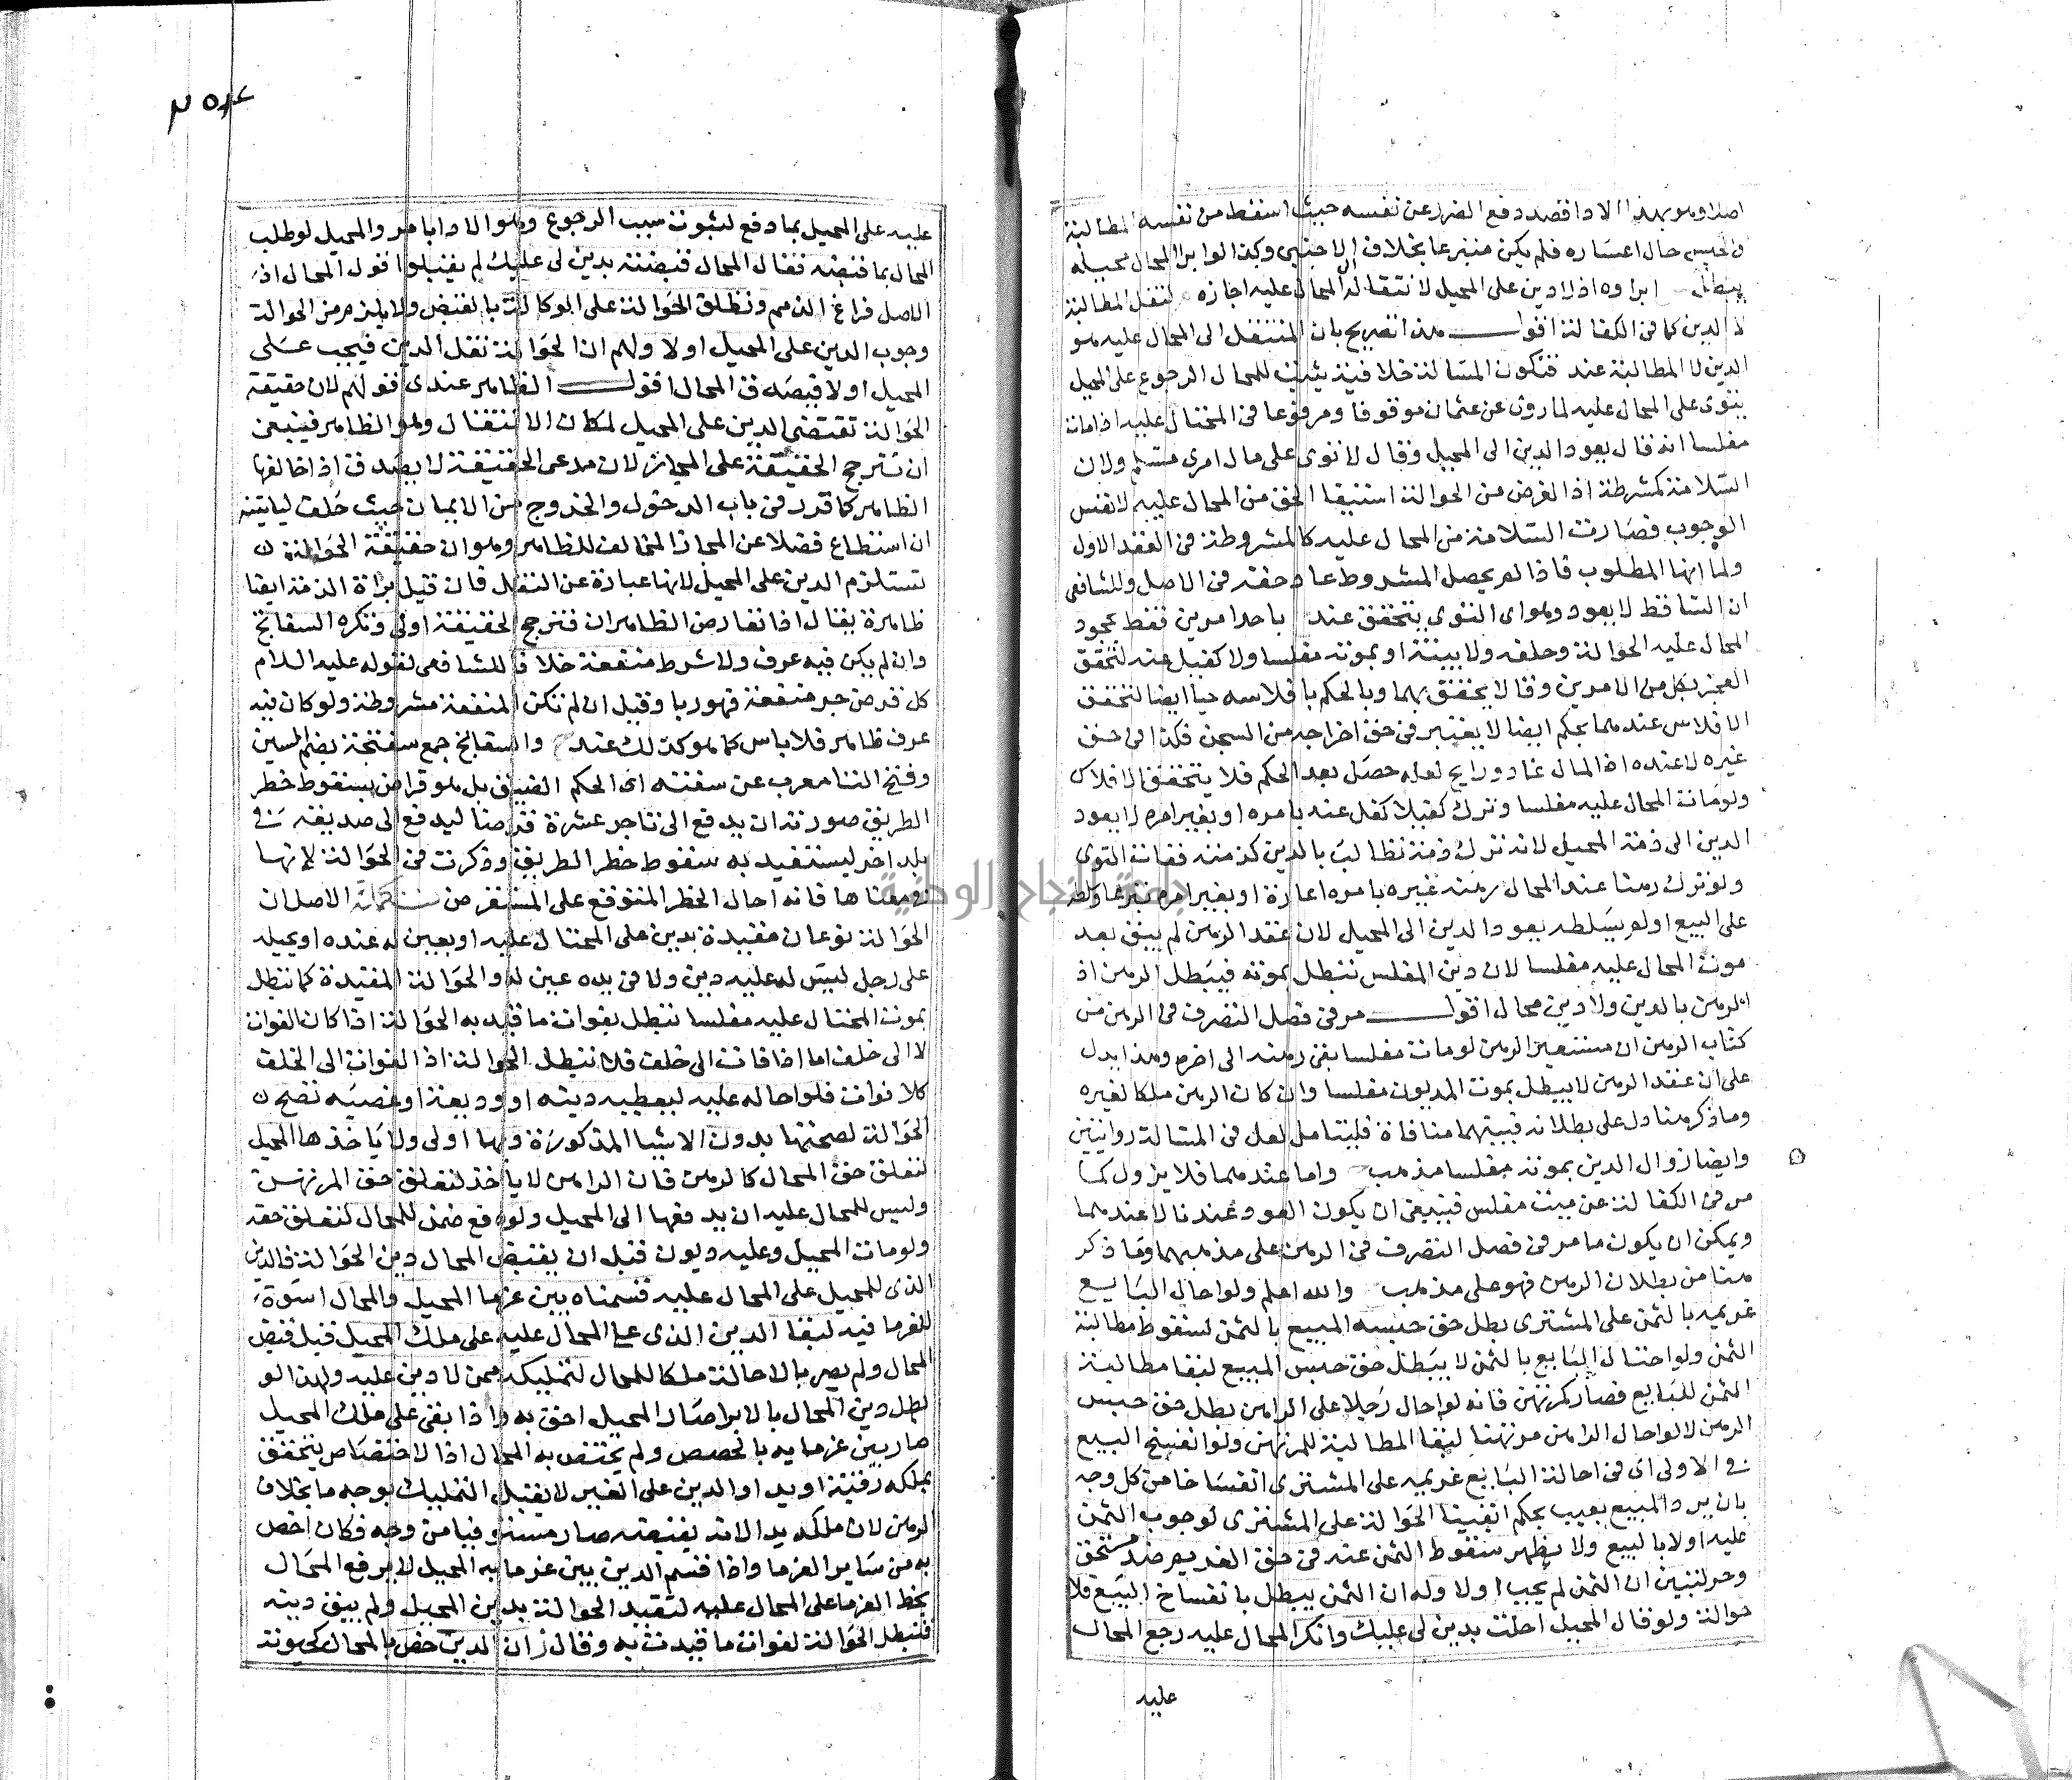 اصلا وهو بهذا الادا قصد دفع الضرر عن نفسه حيث اسقط من نفسه المطالبة
والحبس حال اعساره فلم يكن متبرعا بخلاف الاجنبي وكذا لو ابرا المحال محيله
يبطل ابراوه اذ لا دين على المحيل لانتقاله الى المحال عليه اجازه لنقل المطالبة
لا الدين كما في الكفالة اقول هذا تصريح بان المنتقل الى المحال عليه هو
الدين لا المطالبة عند فتكون المسالة خلافية يثبت للمحال الرجوع على المحيل
بتوى على المحال عليه لما روى عن عثمان موقوفا ومرفوعا في المحتال عليه اذا مات
مفلسا انه قال يعود الدين الى المحيل وقال لا توى على مال امرئ مسلم ولان
السلامة كمشرطة اذ الغرض من الحوالة استيفا الحق من المحال عليه لا نفس
الوجوب فصارت السلامة من المحال عليه كالمشروطة في العقد الاول
ولما انها المطلوب فاذا لم يحصل المشروط عاد حقه في الاصل وللشافعي
ان الساقط لا يعود وهو اي التوى يتحقق عند باحد امرين فقط بجحود
المحال عليه الحوالة وحلفه ولا بينة او بموته مفلسا ولا كفيل عنه لتحقق
العجز بكل من الامرين وقالا يتحقق بهما وبالحكم بافلاسه حيا ايضا لتحقق
الافلاس عندهما بحكم ايضا لا يعتبر في حق اخراجه من السجن فكذا في حق
غيره لا عنده اذ المال غاد ورايح لعله حصل بعد الحكم فلا يتحقق الافلاس
ولو مات المحال عليه مفلسا وترك كفيلا كفل عنه بامره او بغير امره لا يعود
الدين الى ذمة المحيل لانه ترك ذمة تطالب بالدين كذمته ففات التوى
ولو ترك رهنا عند المحال رهنه غيره بامره اعارة او بغير امره تبرعا وسلطه
على البيع او لم يسلطه يعود الدين الى المحيل لان عقد الرهن لم يبق بعد
موت المحال عليه مفلسا لان دين المفلس تبطل بموته فيبطل الرهن اذ
الرهن بالدين ولا دين محال اقول مر في فصل التصرف في الرهن من
كتاب الرهن ان مستعير الرهن لو مات مفلسا بقى رهنه الى اخره وهذا يدل
على ان عقد الرهن لا يبطل بموت المديون مفلسا وان كان الرهن ملكا لغيره
وما ذكر هنا دل على بطلانه فبينهما منافاة فليتامل لعل في المسالة روايتين
وايضا زوال الدين بموته مفلسا مذهب واما عندهما فلا يزول كما
مر في الكفالة عن ميت مفلس فينبغي ان يكون العود عندنا لا عندهما
ويمكن ان يكون ما مر في فصل التصرف في الرهن على مذهبهما وما ذكر
هنا من بطلان الرهن فهو على مذهب والله اعلم ولو احال البايع
غريمه بالثمن على المشتري بطل حق حبسه المبيع بالثمن لسقوط مطالبة
الثمن ولو احتال البايع بالثمن لا يبطل حق حبس المبيع لبقا مطالبة
الثمن للبايع فصار كمرتهن فانه لو احال رجلا على الراهن بطل حق حبس
الرهن لا لو احال الراهن مرتهنا لبقا المطالبة للمرتهن ولو انفسخ البيع
في الاولى اي في احالة البايع غريمه على المشتري انفساخا من كل وجه
بان يرد المبيع بعيب بحكم ابقينا الحوالة على المشتري لوجوب الثمن
عليه اولا بالبيع ولا يظهر سقوط الثمن عنه في حق الغريم ضد مستحق
وحر لتبين ان الثمن لم يجب اولا وله ان الثمن يبطل بانفساخ البيع فلا
حوالة ولو قال المحيل احلت بدين لي عليك وانكر المحال عليه رجع المحال
عليه
٢٥٤
عليه على المحيل بما دفع لثبوت سبب الرجوع وهو الادا بامره والمحيل لو طلب
المحال بما قبضه فقال المحال قبضته بدين لي عليك لم يقبلوا قول المحال اذ
الاصل فراغ الذمم وتطلق الحوالة على الوكالة بالقبض ولا يلزم من الحوالة
وجوب الدين على المحيل اولا ولهم ان الحوالة نقل الدين فيجب على
المحيل اولا قبضه في المحال اقول الظاهر عندي قولهم لان حقيقة
الحوالة تقتضي الدين على المحيل لمكان الانتقال وهو الظاهر فينبغي
ان تترجح الحقيقة على المجاز لان مدعي الحقيقة لا يصدق اذا خالفها
الظاهر كما قرر في باب الدخول والخروج من الايمان حيث حلف لياتينه
ان استطاع فضلا عن المجاز المخالف للظاهر وهو ان حقيقة الحوالة
تستلزم الدين على المحيل لانها عبارة عن النقل فان قيل براة الذمة ايضا
ظاهرة يقال اذا تعارض الظاهران فترجح الحقيقة اولى وتكره السفاتج
وان لم يكن فيه عرف ولا شرط منفعة خلافا للشافعي لقوله عليه السلام
كل قرض جر منفعة فهو ربا وقيل ان لم تكن المنفعة مشروطة ولو كان فيه
عرف ظاهر فلا باس كما هو كذلك عند والسفاتج جمع سفتجة بضم السين
وفتح التا معرب عن سفته اي الحكم الضيق بل هو قراض بسقوط خطر
الطريق صورته ان يدفع الى تاجر عشرة قرضا ليدفع الى صديقه في
بلد اخر ليستفيد به سقوط خطر الطريق وذكرت في الحوالة لانها
في معناها فانه احال الخطر المتوقع على المستقرض الاصل ان
الحوالة نوعان مقيدة بدين على المحتال عليه او بعين له عنده او يحيله
على رجل ليس له عليه دين ولا في يده عين له والحوالة المقيدة كما تبطل
بموت المحتال عليه مفلسا تبطل بفوات ما قيد به الحوالة اذا كان الفوات
لا الى خلف اما اذا فات الى خلف فلا تبطل الحوالة اذ الفوات الى الخلف
كلا فوات فلو احاله عليه ليعطيه دينه او وديعة او غصبه تصح
الحوالة لصحتها بدون الاشيا المذكورة وبها اولى ولا ياخذها المحيل
لتعلق حق المحال كالرهن فان الراهن لا ياخذ لتعلق حق المرتهن
وليس للمحال عليه ان يدفعها الى المحيل ولو دفع ضمن للمحال لتعلق حقه
ولو مات المحيل وعليه ديون قبل ان يقبض المحال دين الحوالة فالدين
الذي للمحيل على المحال عليه قسمناه بين غرما المحيل والمحال اسوة
للغرما فيه لبقا الدين الذي على المحال عليه على ملك المحيل قبل قبض
المحال ولم يصر بالاحالة ملكا للمحال لتمليكه ممن لا دين عليه ولهذا لو
بطل دين المحال بالابرا صار المحيل احق به واذا بقي على ملك المحيل
صار بين غرمايه بالحصص ولم يختص به المحال اذ الاختصاص يتحقق
بملكه رقبة او يدا والدين على الغير لا يقبل التمليك بوجه ما بخلاف
الرهن لان ملكه يدا لانه بقبضته صار مستوفيا من وجه فكان اخص
به من ساير الغرما واذا قسم الدين بين غرما به المحيل لا يرفع المحال
بحظ الغرما على المحال عليه لتقيد الحوالة بدين المحيل ولم يبق دينه
فتبطل الحوالة لفوات ما قيدت به وقال زفر ان الدين خص بالمحال كمرهونة
جامعة النجاح الوطنية